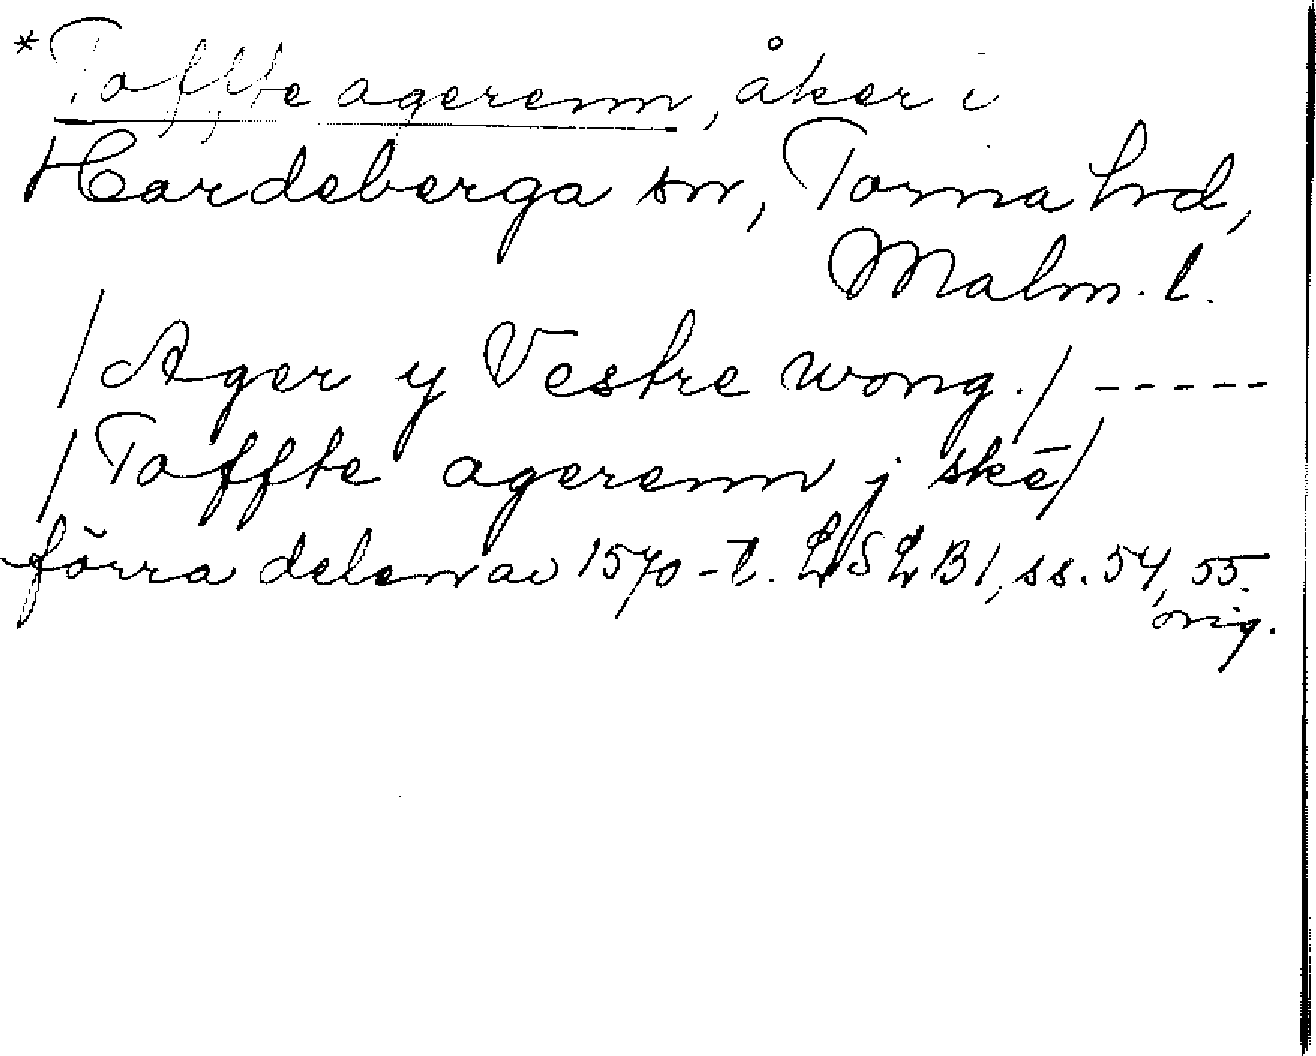 *Toffte agerenn, åker i
Hardeberga sn, Torna hrd,
Malm. l.
/Ager y Vestre wong./ -----
/Toffte agerenn j skē/
förra delen av 1570-t. LSLB1, ss. 54, 55.
orig.